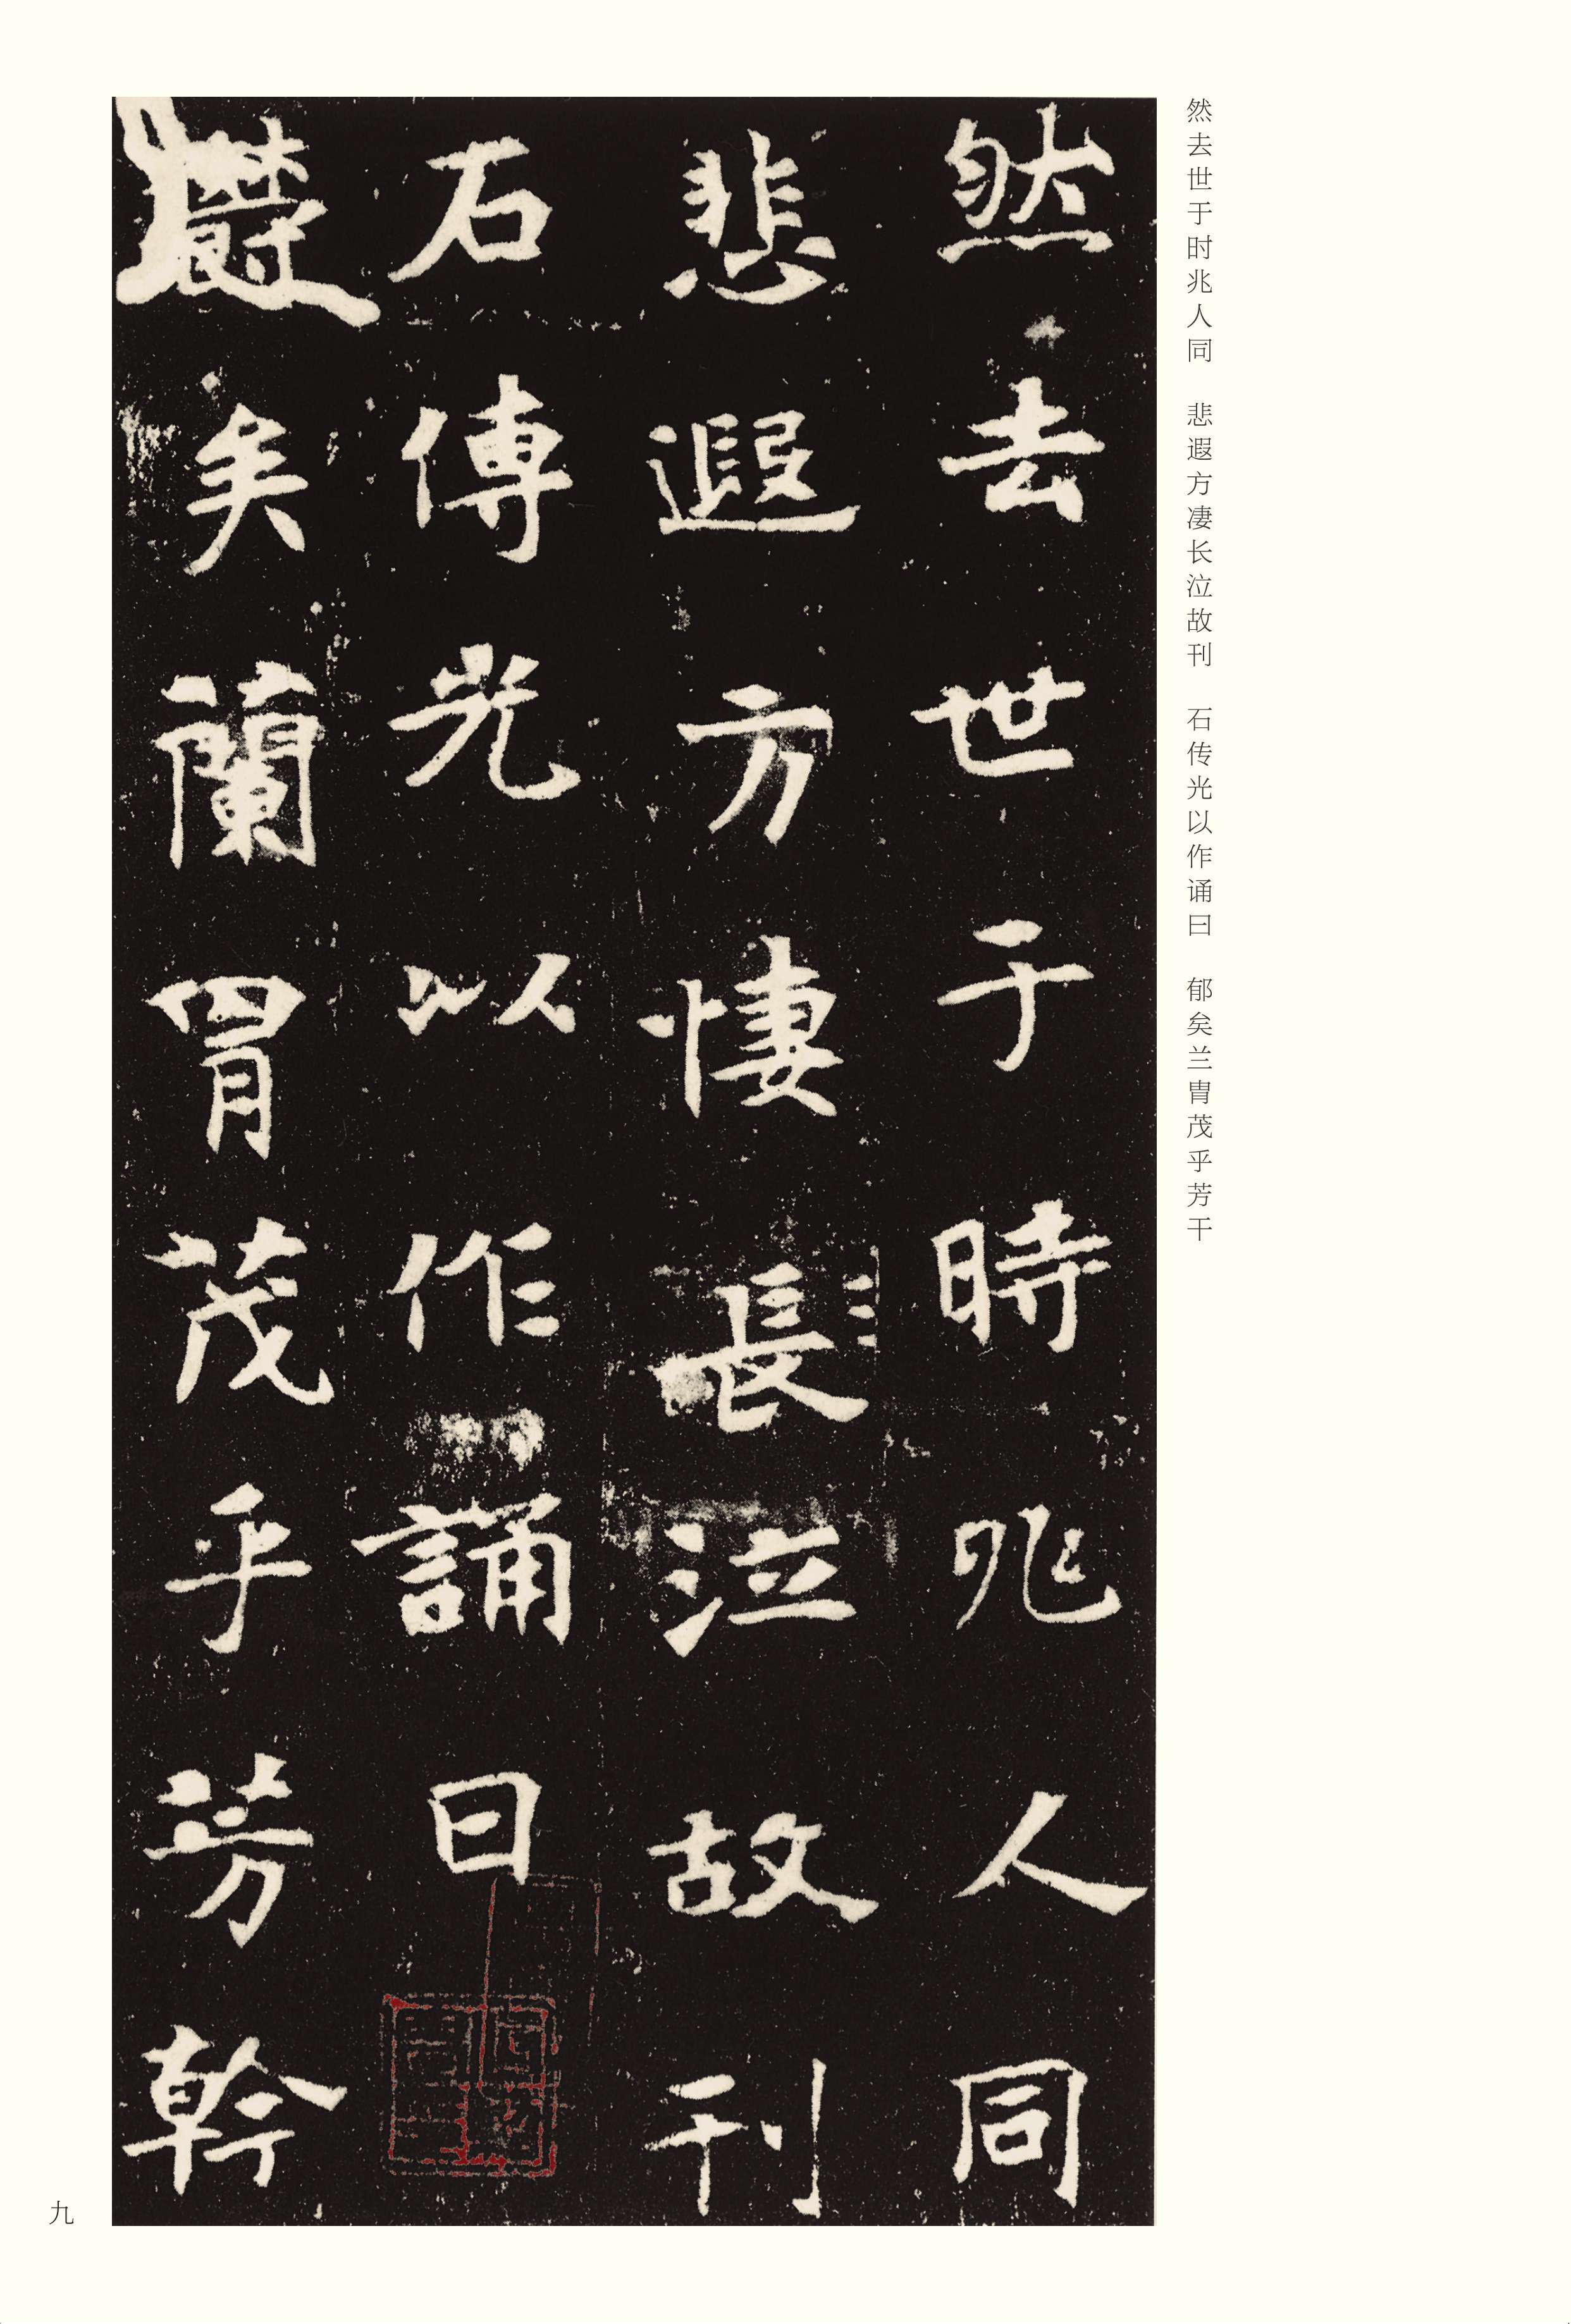 然去世于时兆人同　悲遐方凄长泣故刊　石传光以作诵曰　郁矣兰胄茂乎芳干
然去世于時兆人同
悲遐方悽長泣故刊
石傳光以作誦曰
欝矣蘭胄茂乎芳幹
九